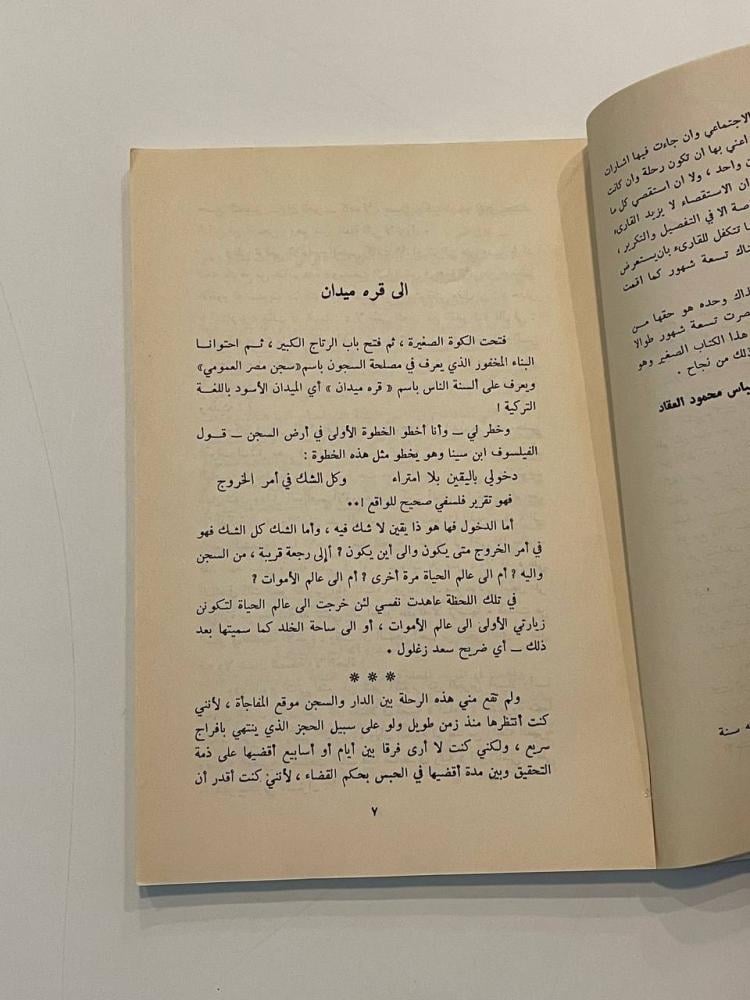 الاجتماعي وان جاءت فيها اشارات
اعني بها ان تكون رحلة وان كانت
واحد ، ولا ان استقصي كل ما
ان الاستقصاء لا يزيد القارىء
الا في التفصيل والتكرير ،
تتكفل للقارىء بان يستعرض
تسعة شهور كما اقمت
وحده هو حقها من
تسعة شهور طوالا
هذا الكتاب الصغير وهو
ذلك من نجاح .
محمود العقاد
سنة
الى قره ميدان
فتحت الكوة الصغيرة ، ثم فتح باب الرتاج الكبير ، ثم احتوانا
البناء المخفور الذي يعرف في مصلحة السجون باسم «سجن مصر العمومي»
ويعرف على ألسنة الناس باسم « قره ميدان » أي الميدان الأسود باللغة
التركية !
وخطر لي ــ وأنا أخطو الخطوة الأولى في أرض السجن ــ قول
الفيلسوف ابن سينا وهو يخطو مثل هذه الخطوة :
دخولي باليقين بلا امتراء وكل الشك في أمر الخروج
فهو تقرير فلسفي صحيح للواقع !..
أما الدخول فها هو ذا يقين لا شك فيه ، وأما الشك كل الشك فهو
في أمر الخروج متى يكون والى أين يكون ? أإلى رجعة قريبة ، من السجن
واليه ? أم الى عالم الحياة مرة أخرى ? أم الى عالم الأموات ?
في تلك اللحظة عاهدت نفسي لئن خرجت الى عالم الحياة لتكونن
زيارتي الأولى الى عالم الأموات ، أو الى ساحة الخلد كما سميتها بعد
ذلك ــ أي ضريح سعد زغلول .
* * *
ولم تقع مني هذه الرحلة بين الدار والسجن موقع المفاجأة ، لأنني
كنت أنتظرها منذ زمن طويل ولو على سبيل الحجز الذي ينتهي بافراج
سريع ، ولكني كنت لا أرى فرقا بين أيام أو أسابيع أقضيها على ذمة
التحقيق وبين مدة أقضيها في الحبس بحكم القضاء ، لأنني كنت أقدر أن
٧